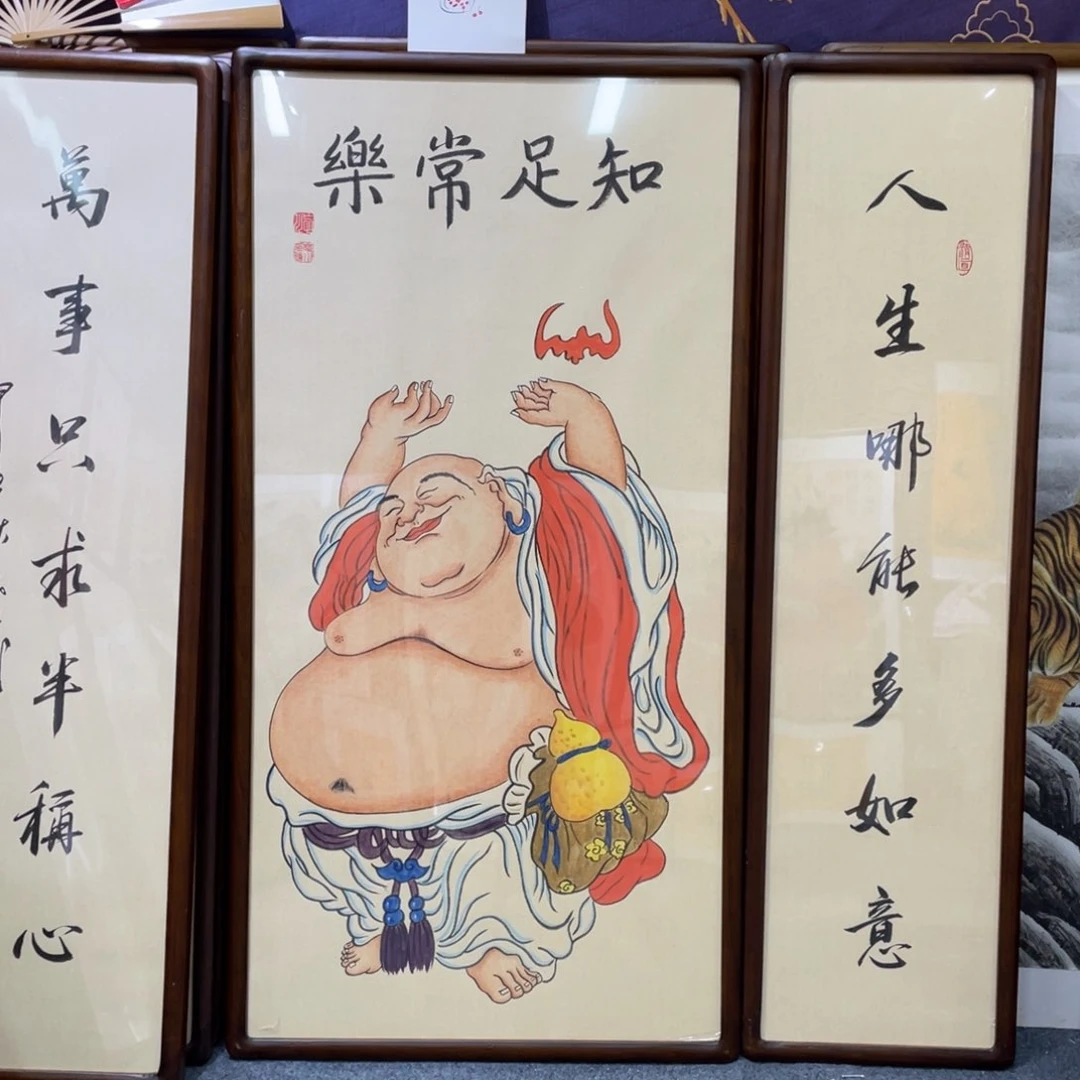 知足常樂
人生哪能多如意
萬事只求半稱心